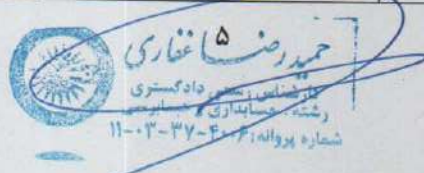 ۵
حمیدرضا غفاری
کارشناس رسمی دادگستری
رشته حسابداری و حسابرسی
شماره پروانه: ۴۰۰۶-۳۷-۰۳-۱۱